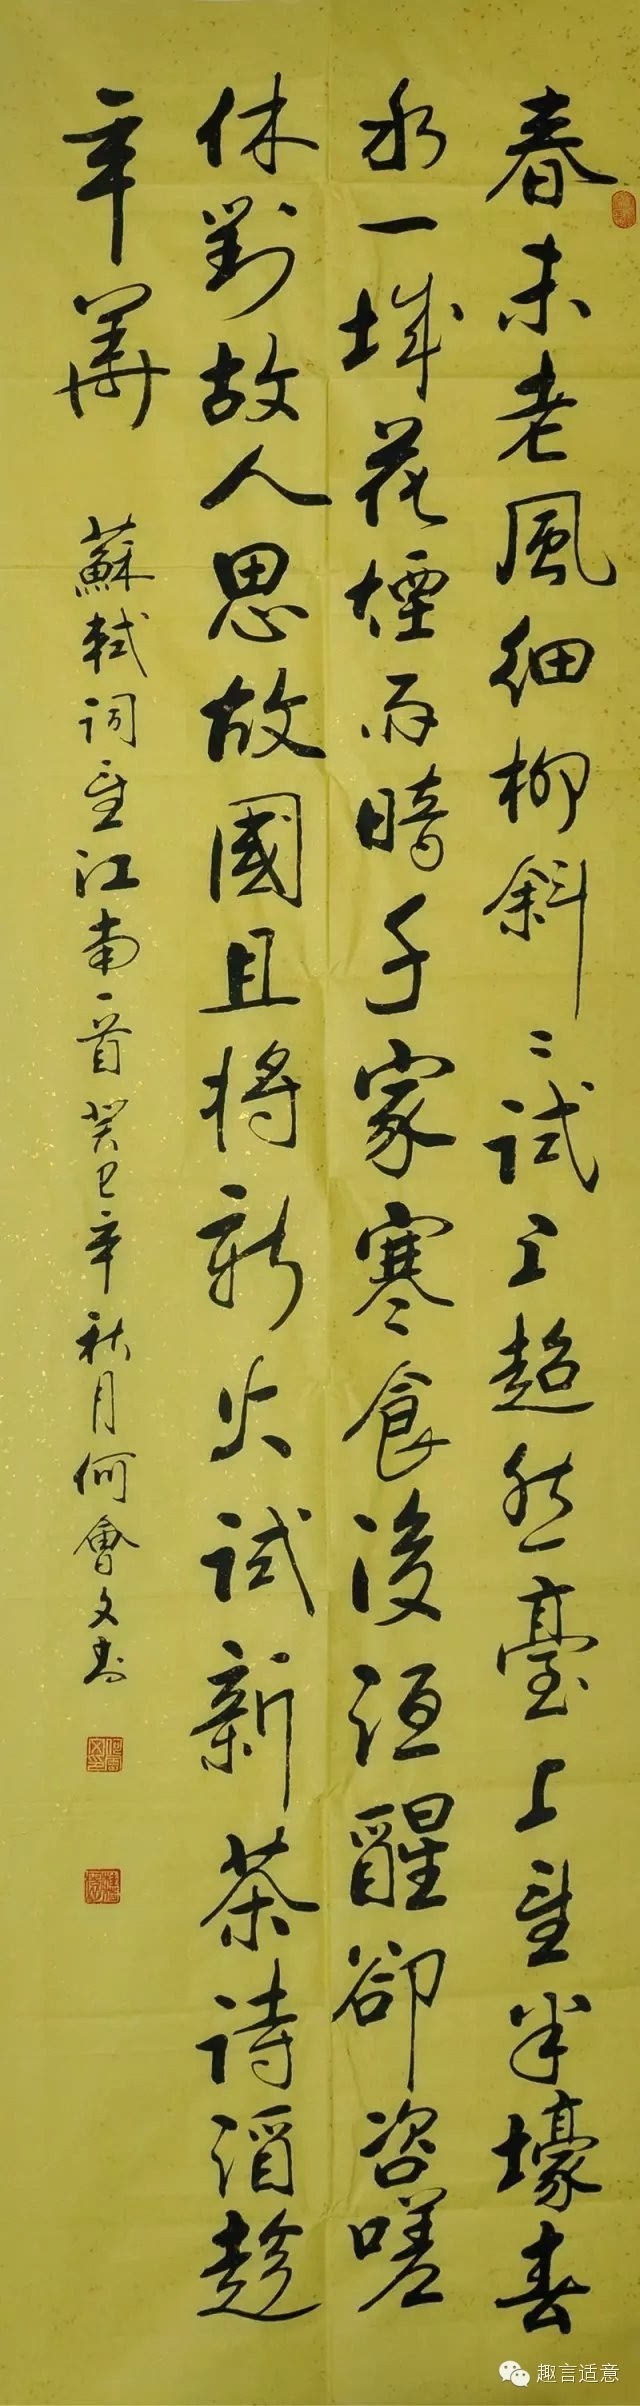 春未老風細柳斜〻試上超然臺上望半壕春
水一城花煙雨暗千家寒食後酒醒卻咨嗟
休對故人思故國且將新火試新茶詩酒趁
年華
蘇軾詞望江南一首癸巳年秋月何會文書
趣言适意